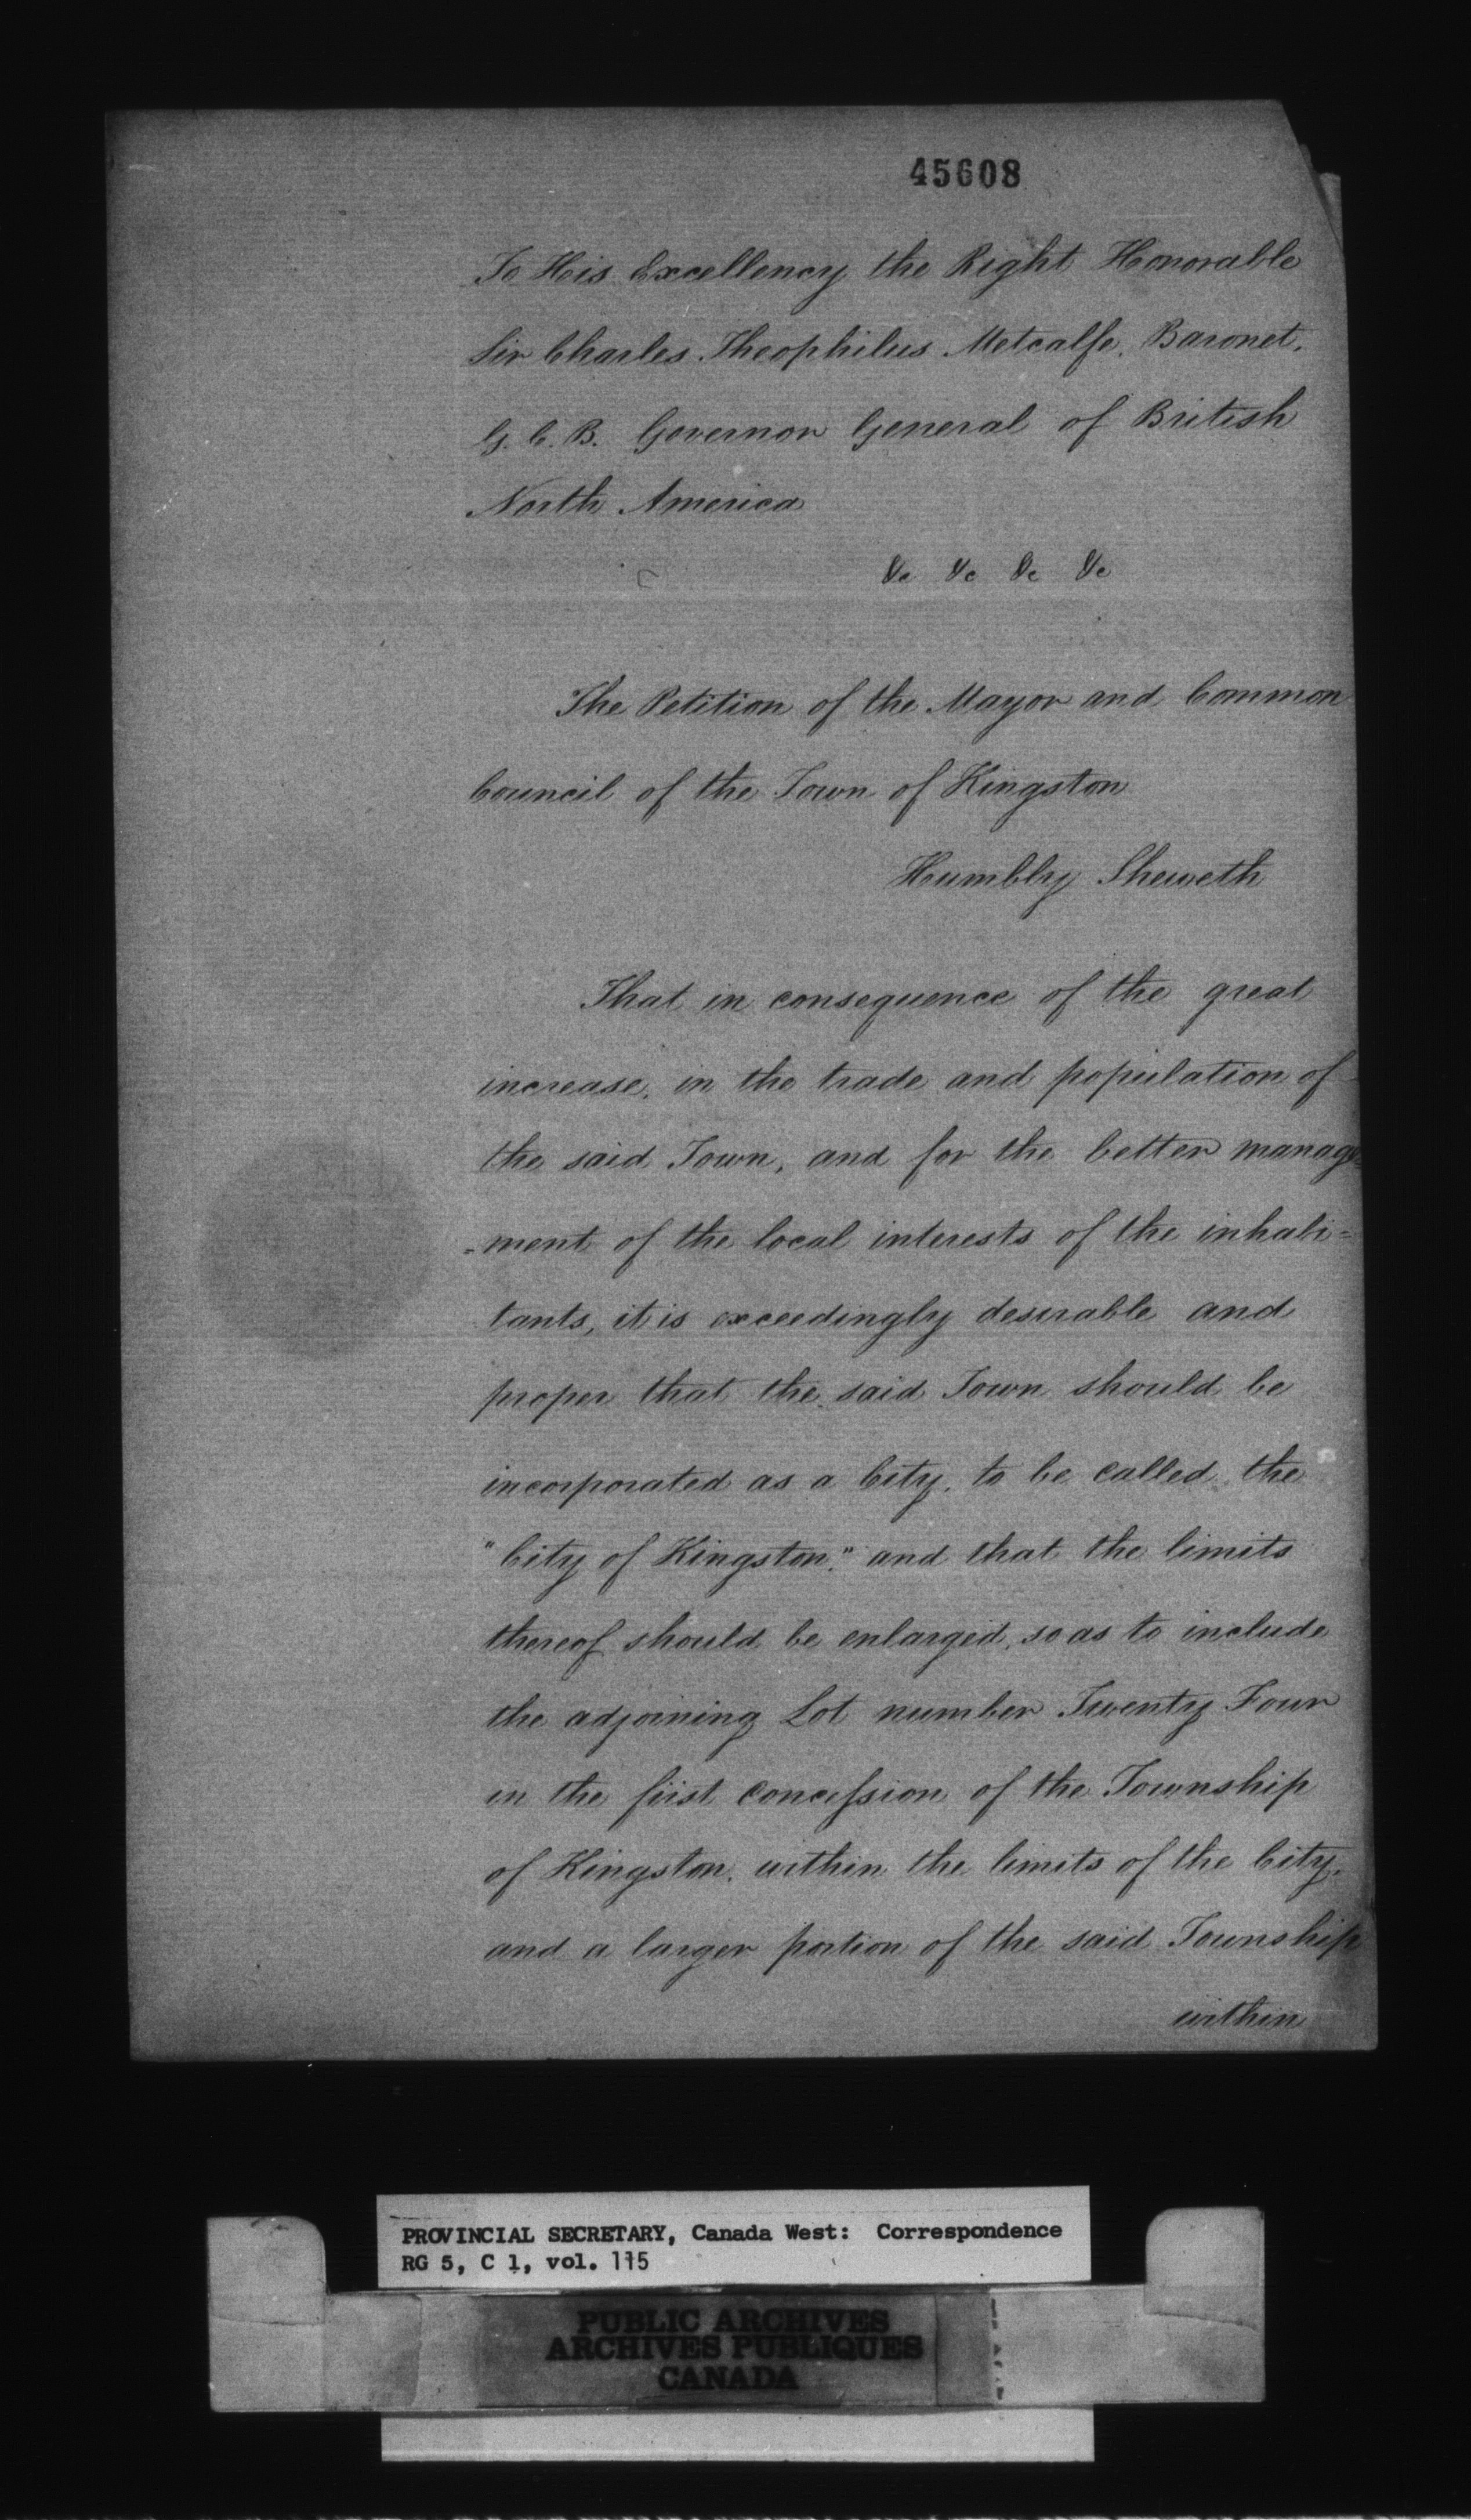 45608
To His Excellency the Right Honorable
Sir Charles Theophilus Metcalfe, Baronet,
G. C. B. Governor General of British
North America
&c &c &c &c
The Petition of the Mayor and Common
Council of the Town of Kingston
Humbly Sheweth
That in consequence of the great
increase, in the trade and population of
the said Town, and for the better manage=
=ment of the local interests of the inhabi=
tants, it is exceedingly desirable and
proper that the said Town should be
incorporated as a City, to be called the
"City of Kingston," and that the limits
thereof should be enlarged, so as to include
the adjoining Lot number Twenty Four
in the first concession of the Township
of Kingston, within the limits of the City,
and a larger portion of the said Township
within
PROVINCIAL SECRETARY, Canada West: Correspondence
RG 5, C 1, vol. 115
PUBLIC ARCHIVES
ARCHIVES PUBLIQUES
CANADA